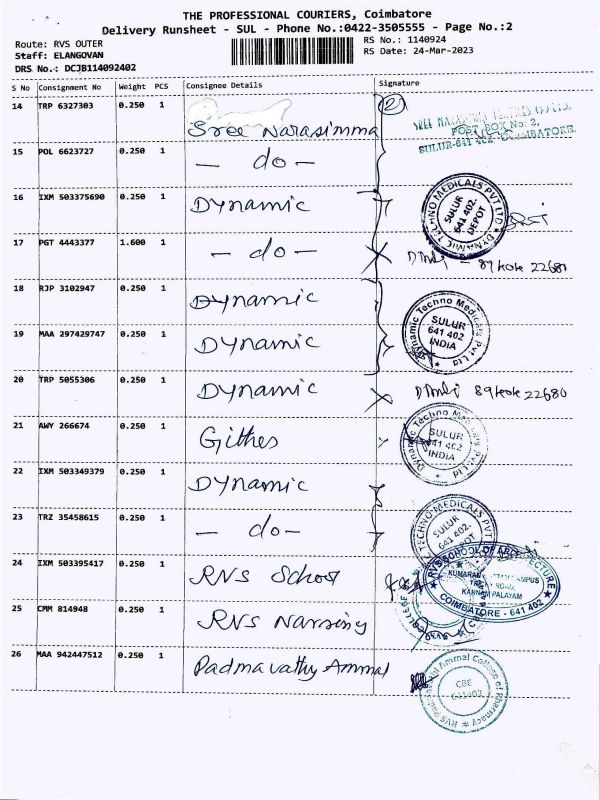 THE PROFESSIONAL COURIERS, Coimbatore
Delivery Runsheet - SUL - Phone No.:0422-3505555 - Page No.:2
Route: RVS OUTER
RS No.: 1140924
Staff: ELANGOVAN
RS Date: 24-Mar-2023
DRS No.: DCJB114092402
S No Consignment No Weight PCS Consignee Details Signature
14 TRP 6327303 0.250 1 Sree Narasimma 2
POST BOX No: 2,
SULUR-641 402 COIMBATORE.
15 POL 6623727 0.250 1 — do —
16 IXM 503375690 0.250 1 Dynamic
DYNAMIC TECHNO MEDICALS PVT LTD
SULUR
641 402.
DEPOT
17 PGT 4443377 1.600 1 — do — 22680
18 RJP 3102947 0.250 1 Dynamic
19 MAA 297429747 0.250 1 Dynamic
Dynamic Techno Medicals Pvt Ltd
SULUR
641 402
INDIA
20 TRP 5055306 0.250 1 Dynamic 22680
21 AWY 266674 0.250 1 Githes
Dynamic Techno Medicals Pvt Ltd
SULUR
641 402
INDIA
22 IXM 503349379 0.250 1 Dynamic
23 TRZ 35458615 0.250 1 — do —
TECHNO MEDICALS PVT
SULUR
641 402.
24 IXM 503395417 0.250 1 RVS School
RVS SCHOOL OF ARCHITECTURE
KANNAM PALAYAM
COIMBATORE - 641 402
25 CMM 814948 0.250 1 RVS Nursing
26 MAA 942447512 0.250 1 Padmavathy Ammal
Ammal College of Pharmacy
CBE
641402